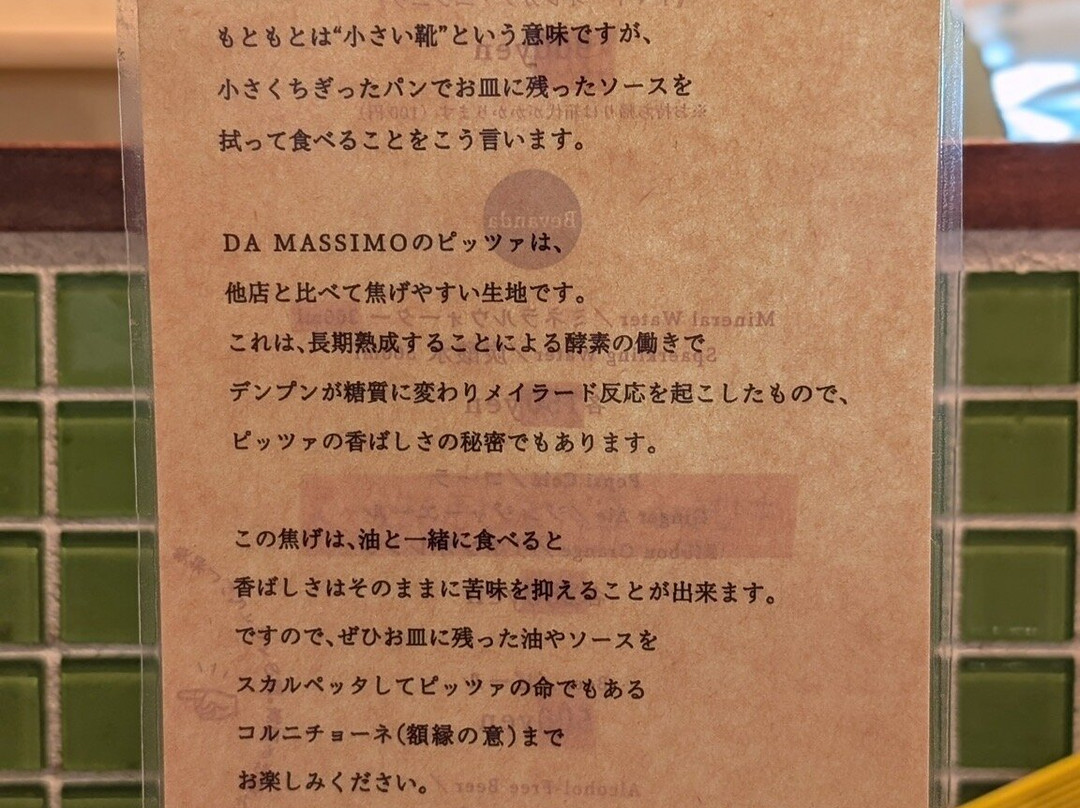 もともとは“小さい靴”という意味ですが、
小さくちぎったパンでお皿に残ったソースを
拭って食べることをこう言います。
DA MASSIMOのピッツァは、
他店と比べて焦げやすい生地です。
これは、長期熟成することによる酵素の働きで
デンプンが糖質に変わりメイラード反応を起こしたもので、
ピッツァの香ばしさの秘密でもあります。
この焦げは、油と一緒に食べると
香ばしさはそのままに苦味を抑えることが出来ます。
ですので、ぜひお皿に残った油やソースを
スカルペッタしてピッツァの命でもある
コルニチョーネ(額縁の意)まで
お楽しみください。